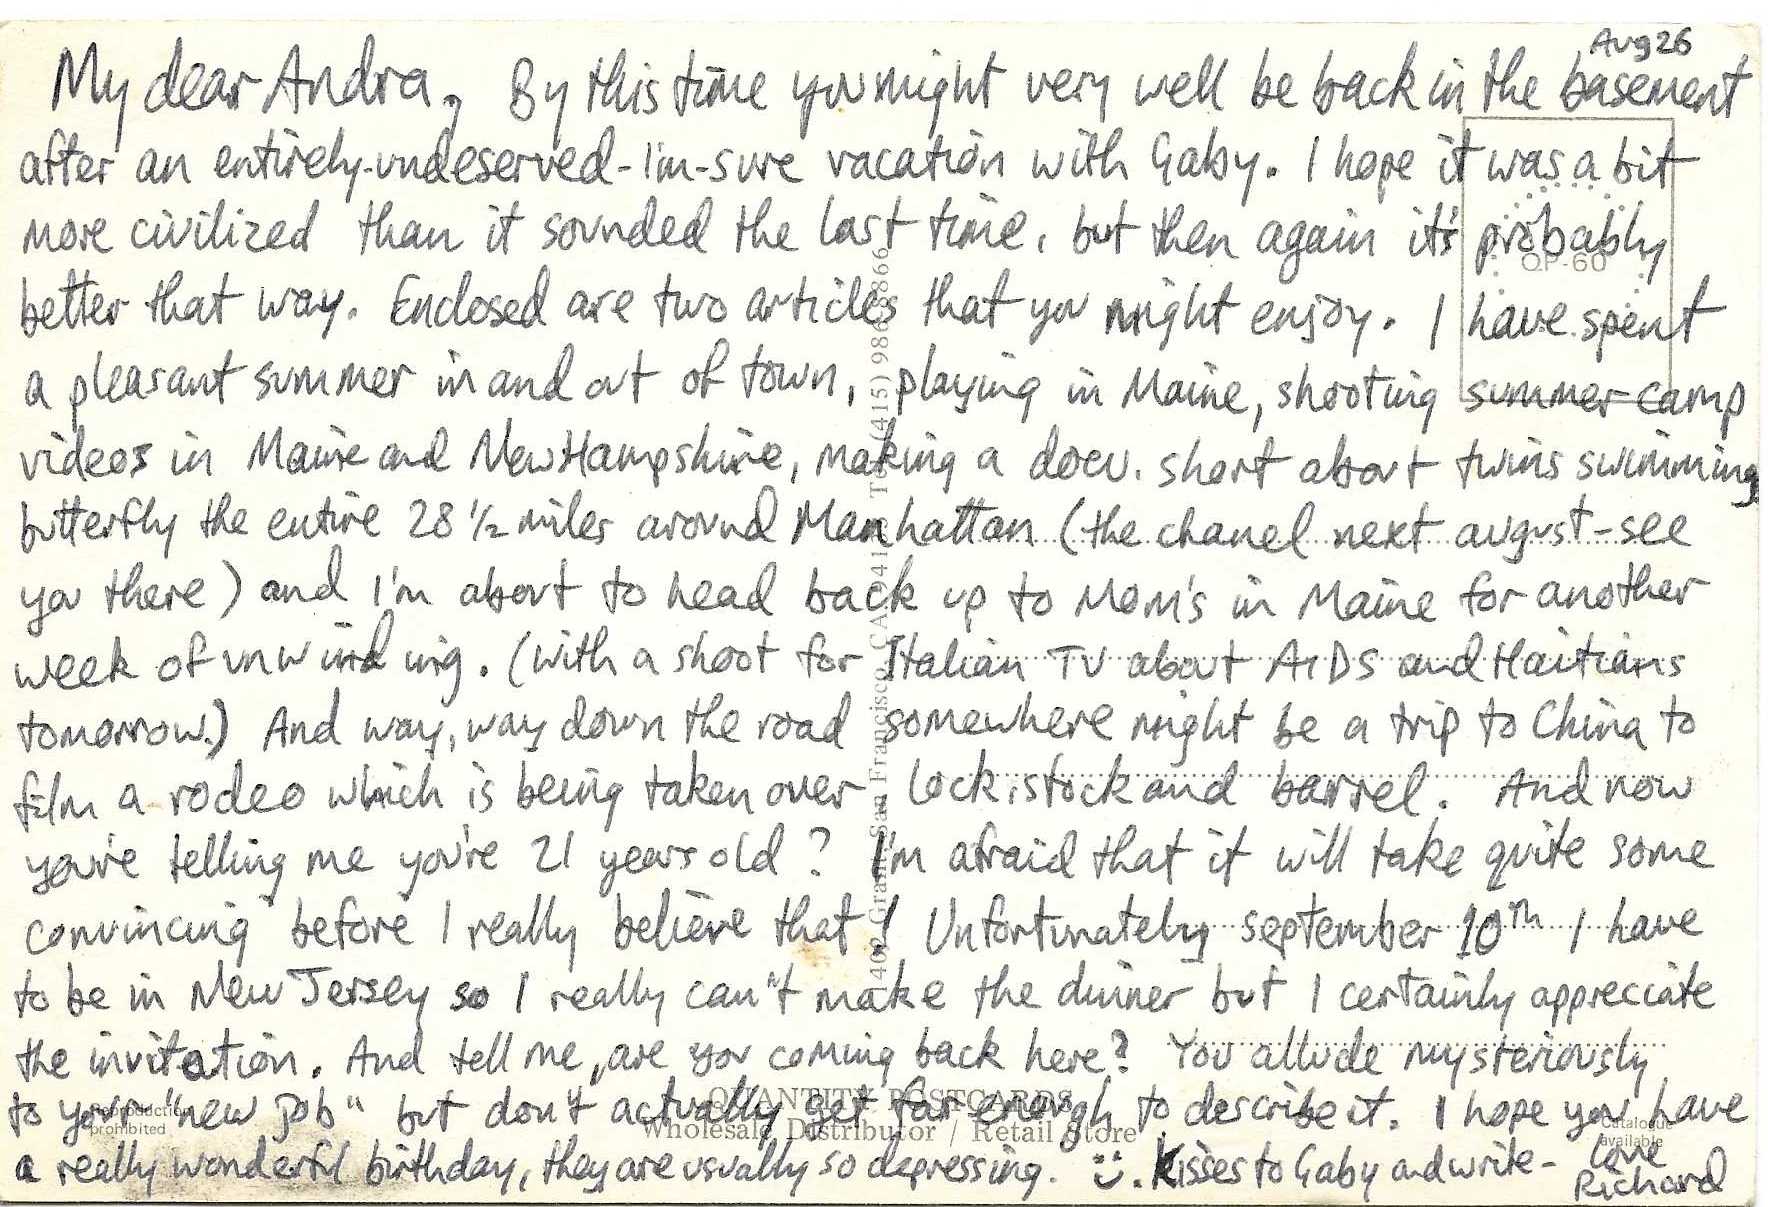 Aug 26
My dear Andra, By this time you might very well be back in the basement
after an entirely-undeserved-I'm-sure vacation with Gaby. I hope it was a bit
more civilized than it sounded the last time, but then again it's probably
better that way. Enclosed are two articles that you might enjoy. I have spent
a pleasant summer in and out of town, playing in Maine, shooting summer camp
videos in Maine and New Hampshire, making a docu. short about twins swimming
butterfly the entire 28 1/2 miles around Manhattan (the chanel next august-see
you there) and I'm about to head back up to Mom's in Maine for another
week of unwinding. (with a shoot for Italian TV about AIDS and Haitians
tomorrow.) And way, way down the road somewhere might be a trip to China to
film a rodeo which is being taken over lock, stock and barrel. And now
you're telling me you're 21 years old? I'm afraid that it will take quite some
convincing before I really believe that! Unfortunately september 10th I have
to be in New Jersey so I really can't make the dinner but I certainly appreciate
the invitation. And tell me, are you coming back here? You allude mysteriously
to your "new job" but don't actually get far enough to describe it. I hope you have
a really wonderful birthday, they are usually so depressing. Ü. Kisses to Gaby and write-
Love
Richard
QP-60
QUANTITY POSTCARDS
Wholesale Distributor / Retail Store
Reproduction
prohibited
Catalogue
available
Grant San Francisco, CA 941 Tel (415) 986-8866